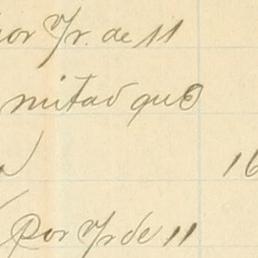 por Yr. de 11
mitad que
16
Por Yr de 11